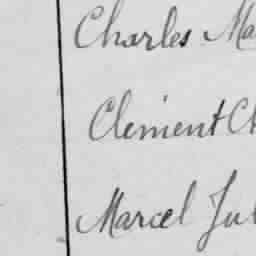 Charles Ma
Clement Ch
Marcel Jul